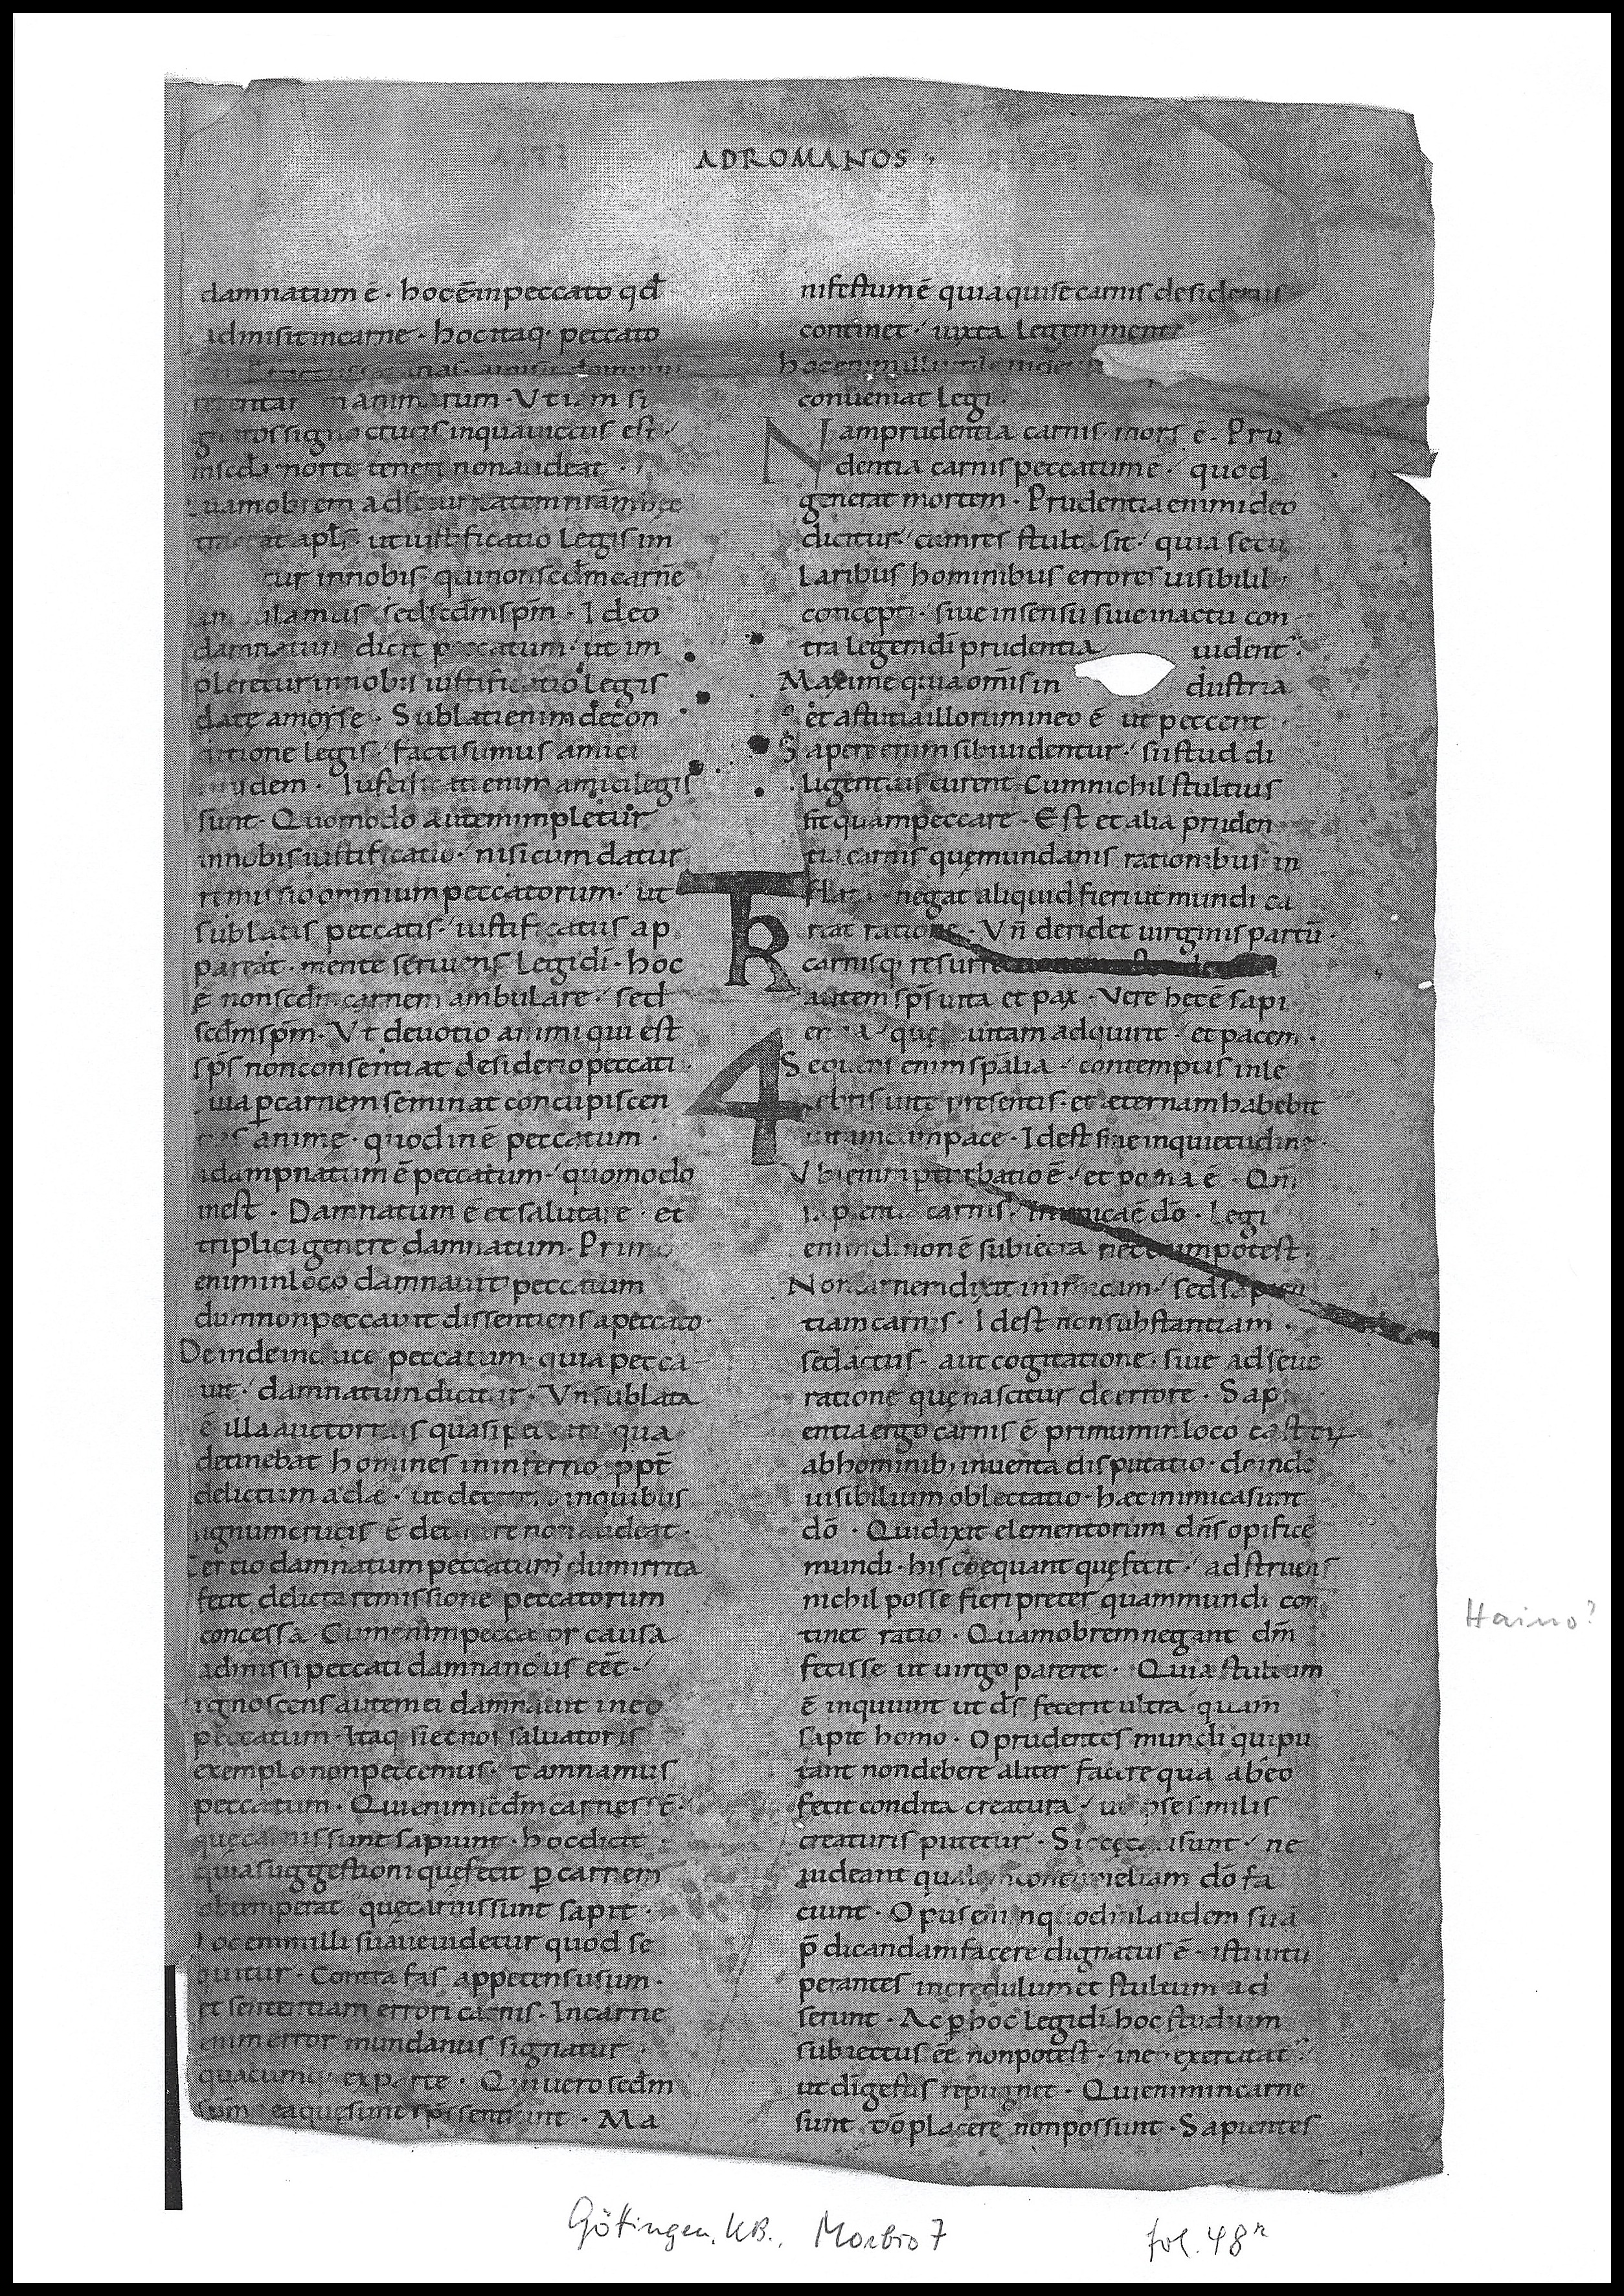 ADROMANOS ·
damnatum ē · hoc ē in peccato qđ
admisit in carne · hoc itaq· peccato
in anim tum · Ut iam si
signo crucis in qua uictus est
morte teneri non audeat ·
uamobrem ad
at apl̄s · ut iustificatio legis im
tur in nobis · qui non scđm carnē
amus sed scđm sp̄m · Ideo
damnatum dicit peccatum · ut im
pleretur in nobis iustificatio legis
datę a moyse · Sublati enim de con
ditione legis / facti sumus amici
eiusdem · Iustificati enim amici legis
sunt · Quomodo autem impletur
in nobis iustificatio · nisi cum datur
remissio omnium peccatorum · ut
sublatis peccatis · iustificatus ap
pareat · mente seruiens legi dī · hoc
ē non scđm carnem ambulare / sed
scđm sp̄m · Ut deuotio animi qui est
sp̄s non consentiat desiderio peccati ·
uia p carnem seminat concupiscen
anime · quod in ē peccatum ·
i dampnatum ē peccatum · quomodo
inest · Damnatum ē et salutare · et
triplici genere damnatum · Primo
enim in loco damnauit peccatum
dum non peccauit dissentiens a peccato ·
Deinde in cruce peccatum · quia pecca-
uit · damnatum dicitur · Vn̄ sublata
ē illa auctoritas quasi peccati qua
detinebat homines in inferno ppt̄
delictum adæ · ut in quibus
signum crucis ē detinere non audeat ·
Tertio damnatum peccatum dum irrita
fecit delicta remissione peccatorum
concessa · Cum enim peccator causa
admissi peccati damnandus eēt ·
ignoscens autem ei damnauit in eo
peccatum · Itaq si et nos saluatoris
exemplo non peccemus · damnamus
peccatum · Qui enim scđm carnē sī ·
quę carnis sunt sapiunt · hoc dicit
quia suggestioni quę fecit p carnem
obtemperat quę carnis sunt sapit ·
hoc enim illi suaue uidetur quod se
quitur · Contra fas appetens usum ·
et sententiam errori carnis · In carne
enim error mundanus signatur
quacumq ex parte · Qui uero scđm
sp̄m ea quę sunt sp̄s sentiunt · Ma
nifestum ē quia qui se carnis desideriis
continet · iuxta legem
hoc enim illi utile
conueniat legi ·
Nam prudentia carnis · mors ē · Pru
dentia carnis peccatum ē · quod
generat mortem · Prudentia enim ideo
dicitur / cum res stulta sit · quia secu
laribus hominibus errores uisibilib;
concepti · siue in sensu siue in actu con
tra legem dī prudentia uident ·
Maxime quia om̄is in dustria
et astutia illorum in eo ē ut peccent ·
Sapere enim sibi uidentur · si istud di
ligentius curent · Cum nichil stultius
sit quam peccare · Est et alia pruden
tia carnis quę mundanis rationibus in
flata · negat aliquid fieri ut mundi ca
reat ratione · Vn̄ deridet uirginis partū ·
carnisq resurrectionem
autem sp̄s uita et pax · Vere hęc ē sapi
entia · quę uitam adquirit · et pacem ·
Sequens enim sp̄alia · contemptis inle
cebris uitę presentis · et æternam habebit
uitam cum pace · Id est sine inquietudine ·
Ubi enim perturbatio ē · et poena ē · Qm̄
sapientia carnis · inimica ē dō · Legi
enim dī non ē subiecta nec enim potest ·
Non carnem dixit inimicam · sed sapien
tiam carnis · Id est non substantiam ·
sed actus · aut cogitatione · siue adseue
ratione quę nascitur de errore · Sapi
entia ergo carnis ē primum in loco
ab hominib; inuenta disputatio · deinde
uisibilium oblectatio · hæc inimica sunt
dō · Qui dixit elementorum dn̄s opifice
mundi · his coequant quę fecit · adstruens
nichil posse fieri preter quam mundi con
tinet ratio · Quamobrem negant dm̄
fecisse ut uirgo pareret · Quia stultum
ē inquiunt ut d̄s fecerit ultra quam
sapit homo · O prudentes mundi qui pu
tant non debere aliter facere qua ab eo
fecit condita creatura · ut ipse similis
creaturis putetur · Sic cęcati sunt · ne
uideant qualem contumeliam dō fa
ciunt · Opus enim quod in laudem sua
p̄dicandam facere dignatus ē · isti uitu
perantes incredulum et stultum ad
serunt · Ac p hoc legi dī hoc studium
subiectus eē non potest ·
ut dī gestis repugnet · Qui enim in carne
sunt dō placere non possunt · Sapientes
TR
4
Haimo?
Göttingen, UB., Morbio 7
fol. 48r